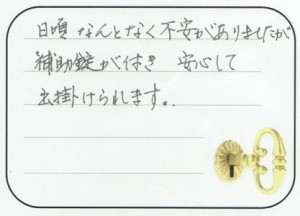 日頃 なんとなく不安がありましたが
補助錠が付き 安心して
出掛けられます。